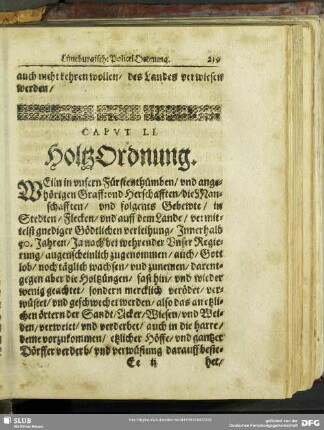 Lüneburgische Policei Ordnung. 219
auch nicht kehren wollen/ des Landes verwiesen
werden/
CAPVT LI.
HoltzOrdnung.
WEiln in vnsern Fürstenthümben/ vnd ange-
hörigen Graff: vnd Herschafften/ die Man-
schafften/ vnd folgents Gebewte/ in
Stedten/ Flecken/ vnd auff dem Lande/ vermit-
telst gnediger Gödtlichen verleihung/ Innerhalb
90. Jahren/ Ja noch bei wehrender Vnser Regie-
rung/ augenscheinlich zugenommen/ auch/ Gott
lob/ noch täglich wachsen/ vnd zunemen/ darent-
gegen aber die Holtzungen/ fast hin/ vnd wieder
wenig geachtet/ sondern mercklich verödet/ ver-
wüstet/ vnd geschwecht werden/ also das an etzli-
chen örtern der Sandt/ Acker/ Wiesen/ vnd Wei-
den/ verweiet/ vnd verderbet/ auch in die harre/
deme vorzukommen/ etzlicher Höffe/ vnd gantzer
Dörffer verderb/ vnd verwüstung darauff beste-
Ee ij het/
SLUB
Wir führen Wissen.
gefördert von der
Deutschen Forschungsgemeinschaft
DFG